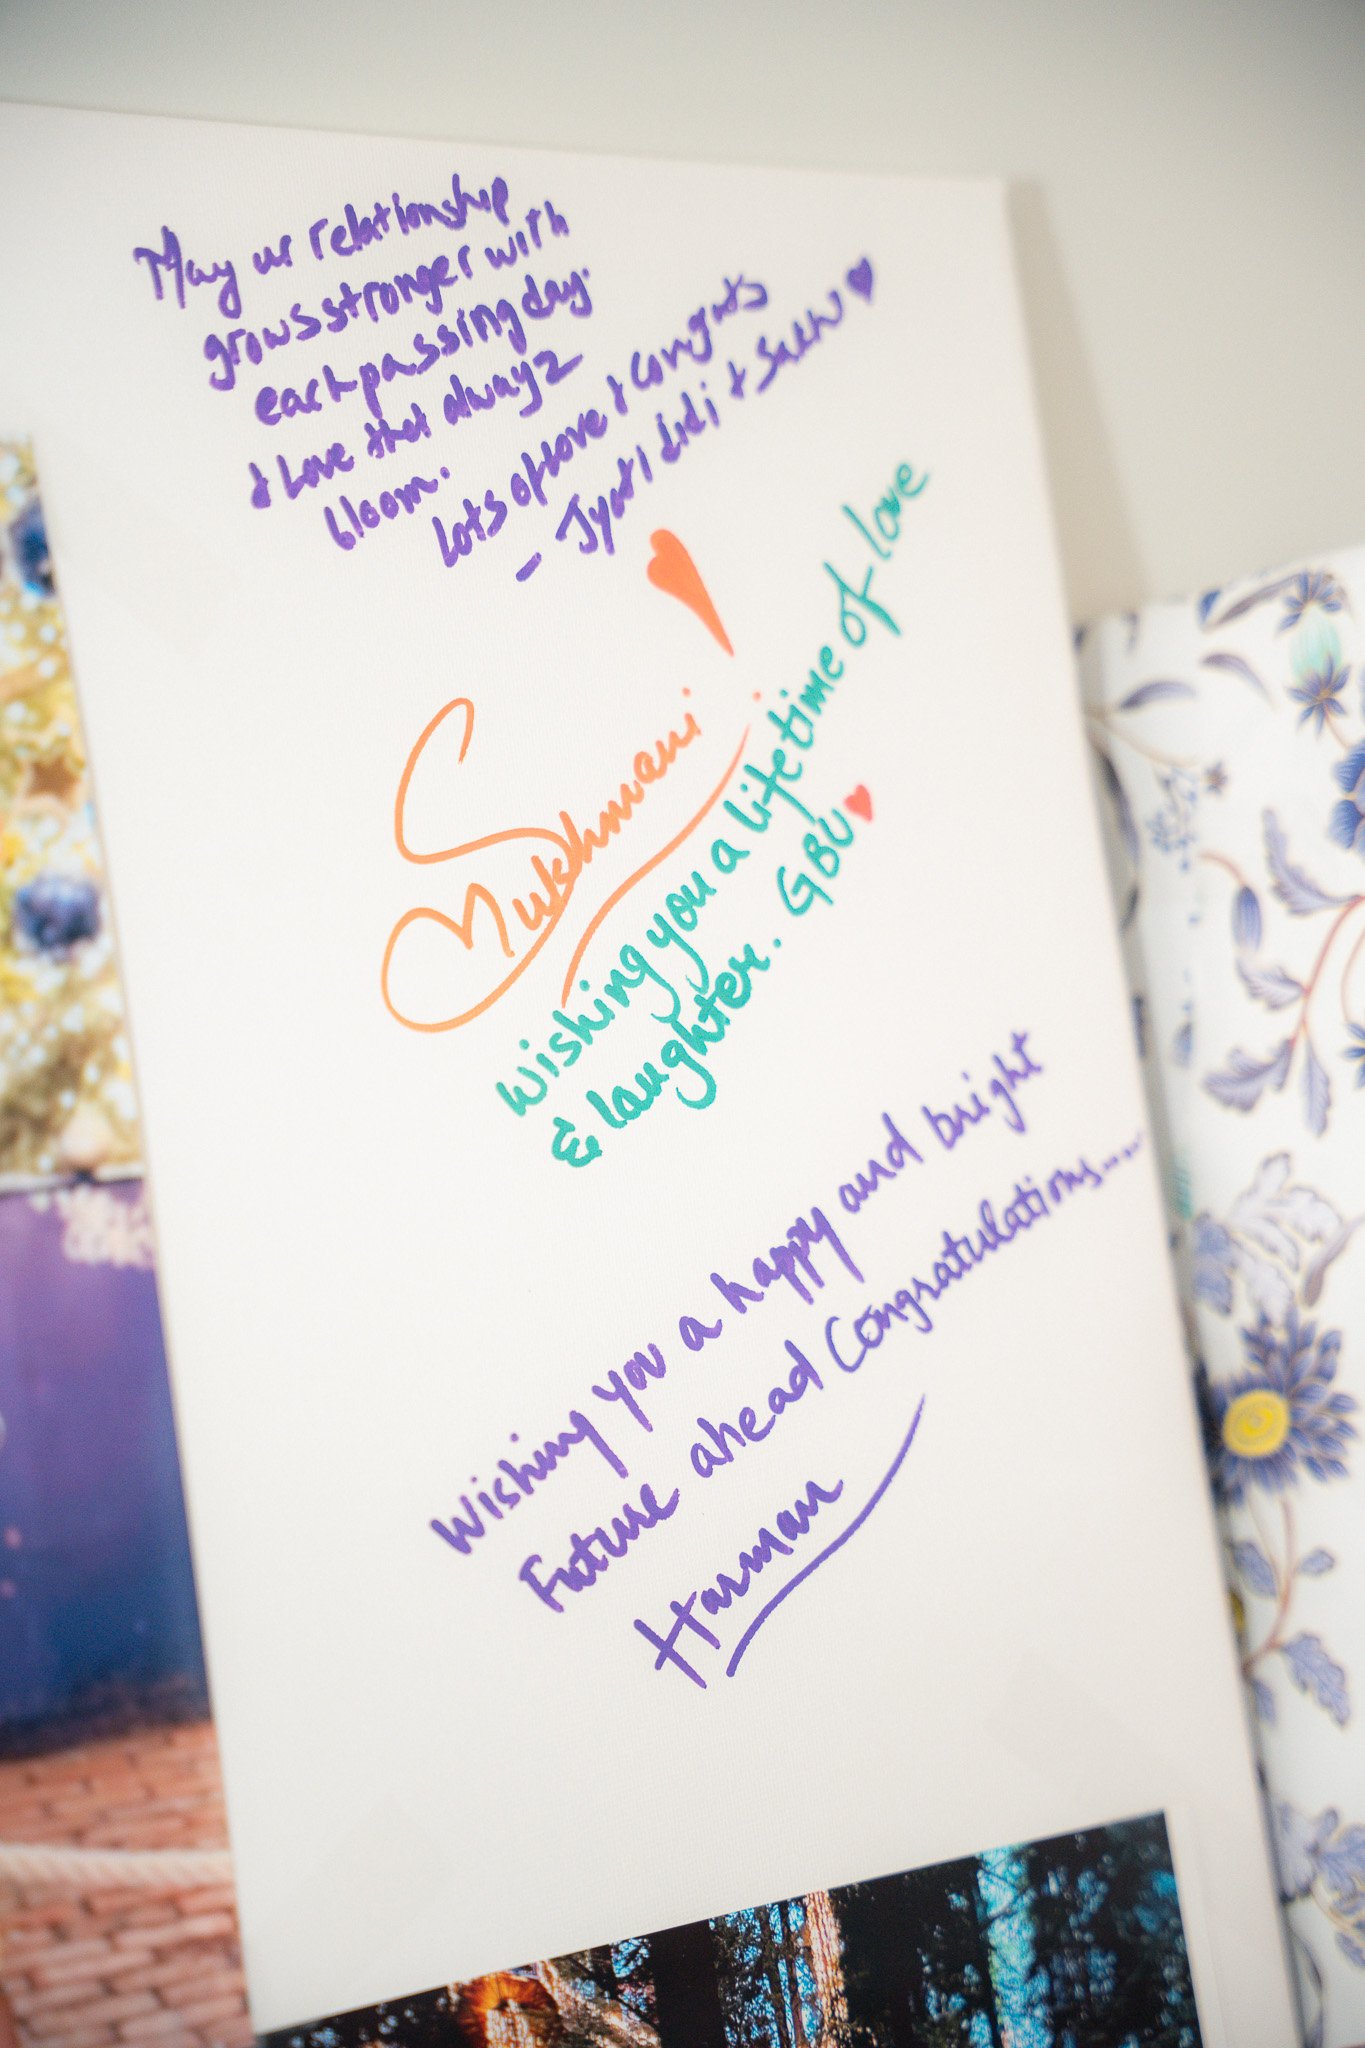 May ur relationship
grows stronger with
each passing day.
& Love that alwayz
bloom.
Lots of love & congrats
- Jyoti didi &
Sukhmani
Wishing you a lifetime of love
& laughter. GBU
Wishing you a happy and bright
Future ahead Congratulations.....
Harman